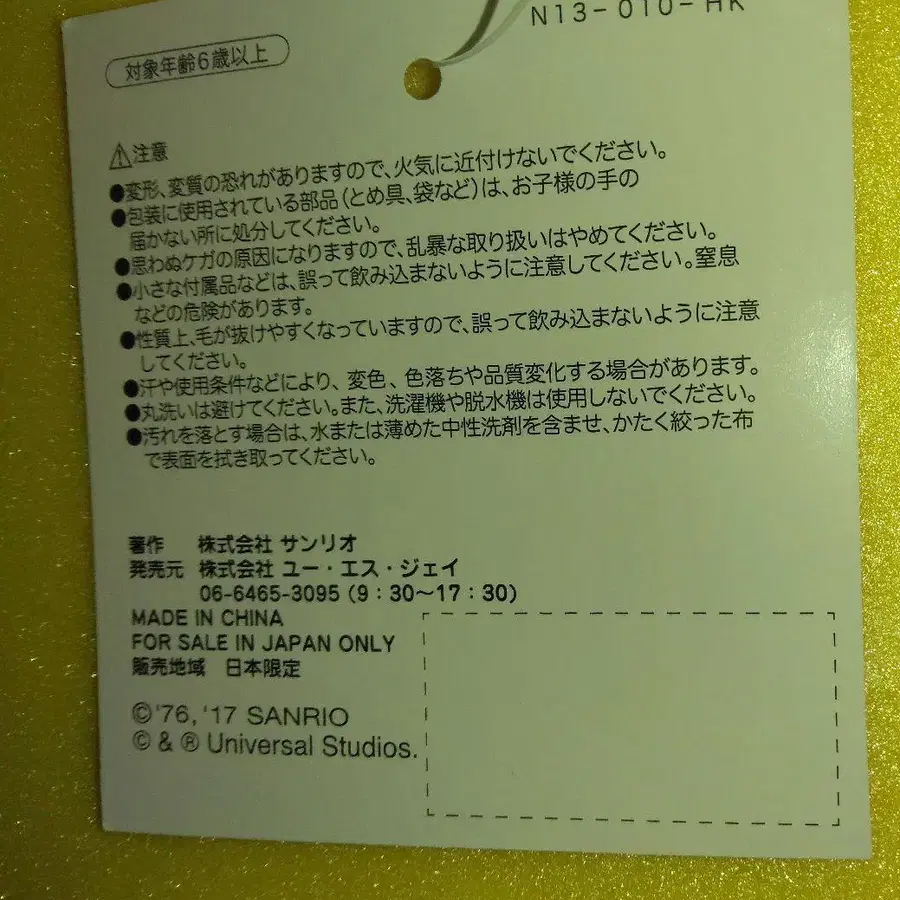 N13-010-HK
対象年齢6歳以上
⚠注意
●変形、変質の恐れがありますので、火気に近付けないでください。
●包装に使用されている部品(とめ具、袋など)は、お子様の手の
届かない所に処分してください。
●思わぬケガの原因になりますので、乱暴な取り扱いはやめてください。
●小さな付属品などは、誤って飲み込まないように注意してください。窒息
などの危険があります。
●性質上、毛が抜けやすくなっていますので、誤って飲み込まないように注意
してください。
●汗や使用条件などにより、変色、色落ちや品質変化する場合があります。
●丸洗いは避けてください。また、洗濯機や脱水機は使用しないでください。
●汚れを落とす場合は、水または薄めた中性洗剤を含ませ、かたく絞った布
で表面を拭き取ってください。
著作 株式会社 サンリオ
発売元 株式会社 ユー・エス・ジェイ
06-6465-3095(9:30~17:30)
MADE IN CHINA
FOR SALE IN JAPAN ONLY
販売地域 日本限定
©'76,'17 SANRIO
© & ® Universal Studios.